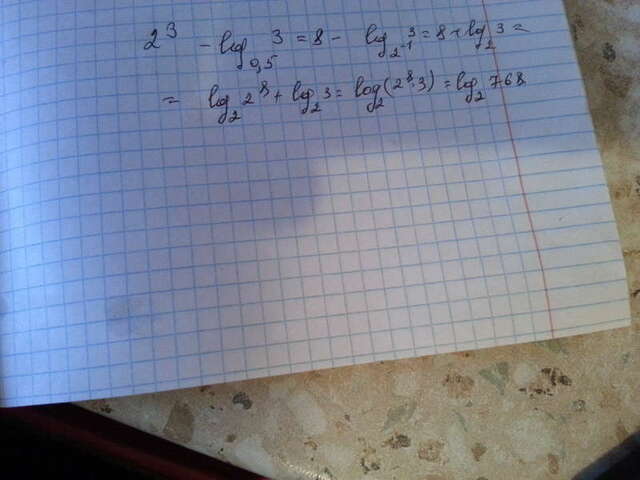 2³ - log₀,₅ 3 = 8 - log₂₋₁ 3 = 8 + log₂ 3 =
= log₂ 2⁸ + log₂ 3 = log₂(2⁸·3) = log₂ 768